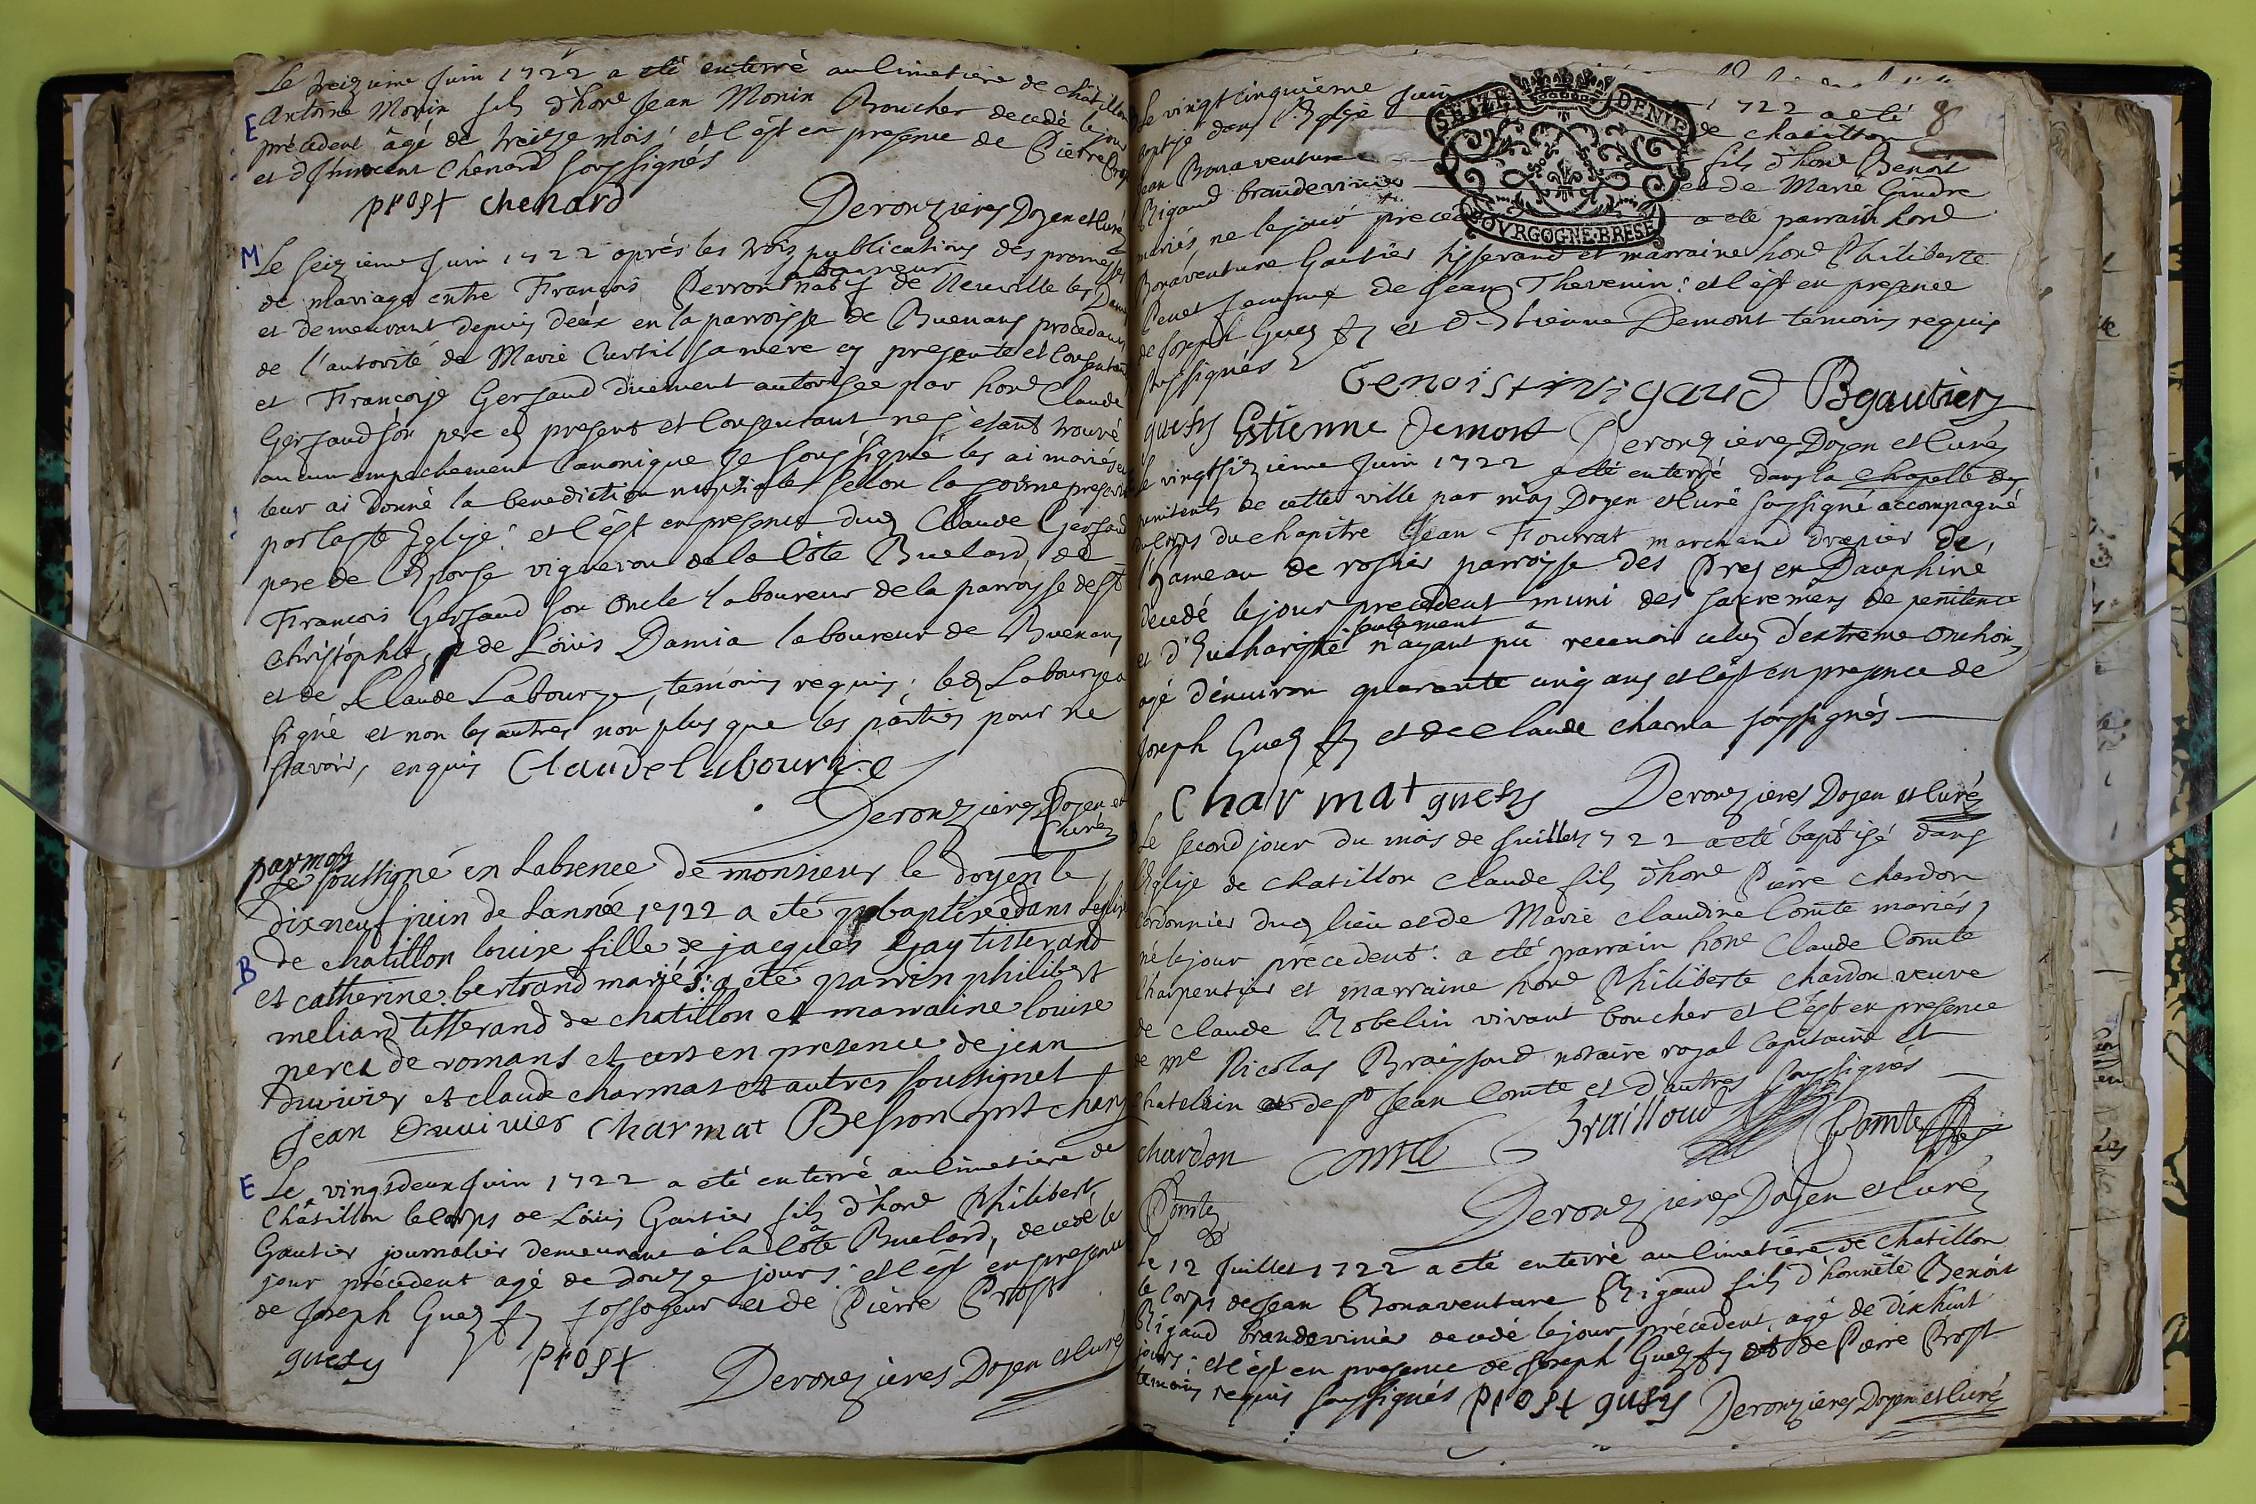 Le seizieme Juin 1722 a eté enterré au Cimetiere de châtillon
E Antoine Monin fils d'hone Jean Monin Boucher decedé le jour
précédent âgé de treize mois : et c'est en presence de Pierre Prost
et d'Innocent Chenard soussignés
prost chenard Deronzieres Doyen et Curé
M Le seizieme Juin 1722 aprés les trois publications des promesses
de mariage entre François Perron laboureur natif de Neuville les Dames
et demeurant depuis deux en la parroisse de Buenans procedant
de l'autorité de Marie Curtil sa mere cy presente et consentante
et Françoise Gersaud duement autorisee par hone Claude
Gersaud son pere cy present et consentant ne s'étant trouvé
aucun empêchement canonique Je soussigné les ai mariés et
leur ai donné la benediction nuptiale selon la forme prescrite
par la Ste Eglise : et c'est en presence dud Claude Gersaud
pere de l'Epouse vigneron de la Côte Buelard, de
François Gersaud son Oncle laboureur de la parroisse de St
Christophle, de Loüis Damia laboureur de Buenans
et de Claude Labourze, temoins requis ; led Labourze a
signé et non les autres non plus que les parties pour ne
sçavoir, enquis Claude labourze
Deronzieres Doyen et
Curé
par moy
Le soussigné en Labsence de monsieur le doyen le
dix neuf juin de Lannée 1722 a eté baptisée dans Leglise
B de chatillon louise fille de jacques Gay tisserand
et catherine bertrand mariés : a eté parrin philibert
meliard tisserand de chatillon et marraine louise
perct de romans et cest en presence de jean
duvivier et claude charmat et autres soussignet
Jean Duvivier charmat Besson prt chan
E Le vingtdeux Juin 1722 a eté enterré au Cimetiere de
Châtillon le Corps de Loüis Gautier fils d'hone Philibert
Gautier journalier demeurant à la Côte Buelard, decedé le
jour précédent agé de douze jours : et c'est en presence
de Joseph Guezsy fossoyeur et de Pierre Prost
guesy prost Deronzieres Doyen et Curé
8
Le vingtcinquieme Juin 1722 a eté
baptisé dans l'Eglise de chatillon
SEIZE DENIE
Jean Bonaventure fils d'hone Benoit
Rigaud brandevinier et de Marie Gindre
mariés ne le jour précedent a eté parrain hone
BOVRGOGNE·BRESE
Bonaventure Gautier tisserand et marraine hone Philiberte
Pevet femme de Jean Thevenin : et c'est en presence
de Joseph Guezsy et d'Etienne Demont temoins requis
soussignés
Benoist rigaud Bgautier
guesy Estienne demont Deronzieres Doyen et Curé
Le vingtsizieme Juin 1722 a eté enterré dans la Chapelle des
penitents de cette ville par moy Doyen et Curé soussigné accompagné
du Corps du chapitre Jean Fourrat marchand drapier de
l'hameau de rosier parroisse des Pres en Dauphiné
decedé le jour precedent muni des sacremens de penitence
et d'Eucharistie seulement n'ayant pû recevoir celuy d'extrême Onction,
agé d'environ quarante cinq ans et c'est en presence de
Joseph Guezsy et de Claude charma soussignés
charmat guesy Deronzieres Doyen et Curé
Le second jour du mois de Juillet 1722 a eté baptisé dans
l'Eglise de chatillon Claude fils d'hone Pierre chardon
cordonnier dud lieu et de Marie Claudine Comte mariés,
né le jour précedent : a eté parrain hone Claude Comte
Charpentier et marraine hone Philiberte chardon veuve
de Claude Robelin vivant boucher et c'est en presence
de me Nicolas Braissoud notaire royal Capitaine et
Chatelain de Jean Comte et d'autres soussignés
chardon Comte Brailloud JComte
Comte
Deronzieres Doyen et Curé
Le 12 Juillet 1722 a eté enterré au Cimetiére de chatillon
le Corps de Jean Bonaventure Rigaud fils d'honnête Benoit
Rigaud brandevinier decedé le jour précédent, agé de dixhuit
jours : et c'est en presence de Joseph Guezsy et de Pierre Prost
temoins requis soussignés prost guesy Deronzieres Doyen et Curé